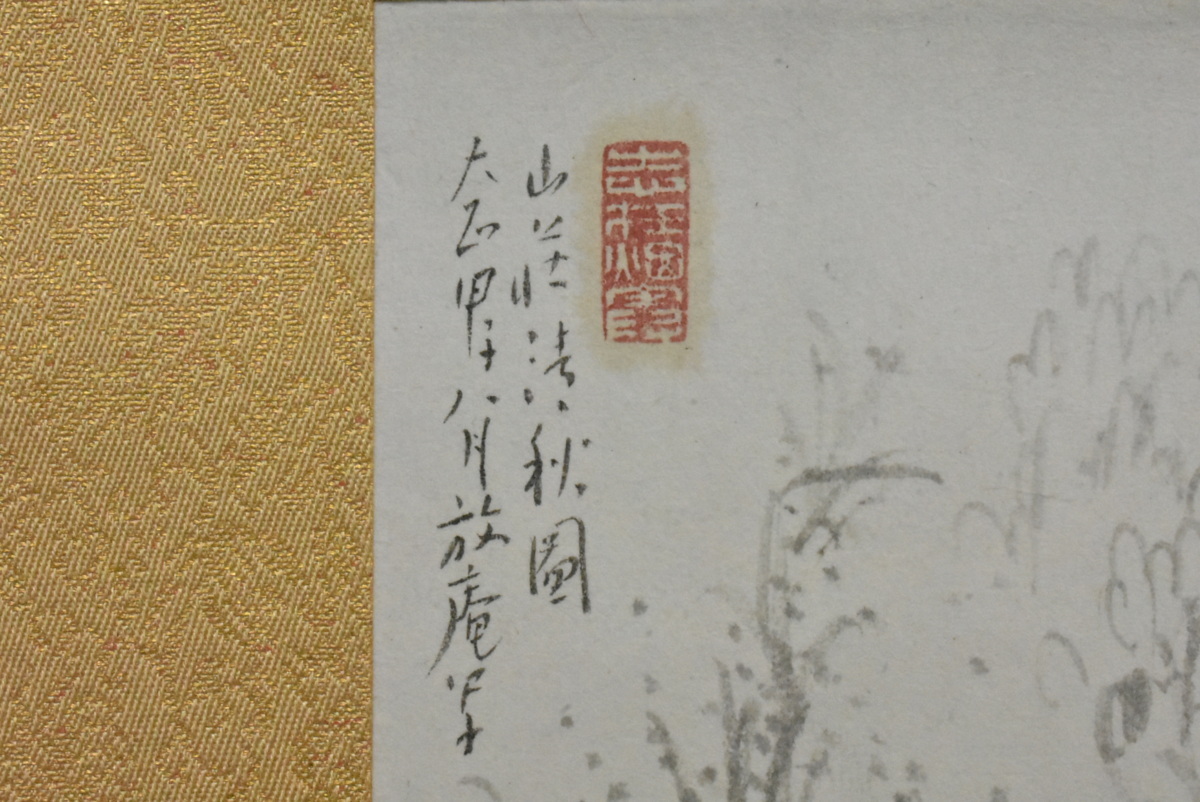 山荘清秋圖
大正甲子八月放庵草